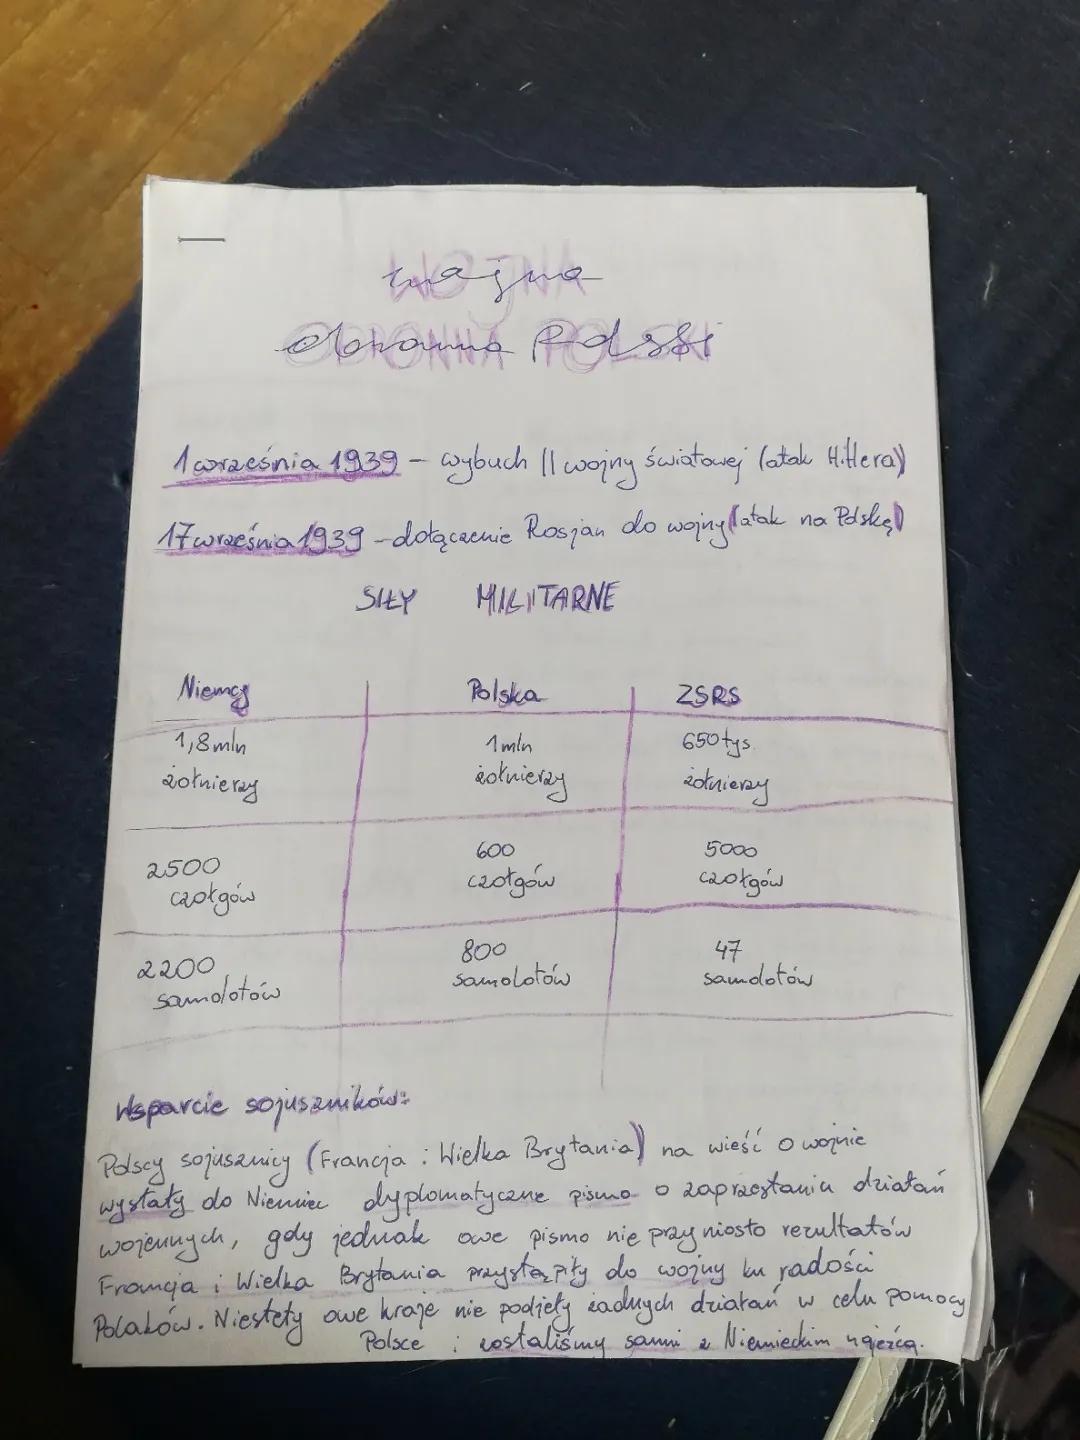 wojna
obronna Polski
1 września 1939 - wybuch II wojny światowej (atak Hitlera)
17 września 1939 - dołączenie Rosjan do wojny (atak na Polskę)
SIŁY MILITARNE
Niemcy Polska ZSRS
1,8 mln 1 mln 650 tys.
żołnierzy żołnierzy żołnierzy
2500 600 5000
czołgów czołgów czołgów
2200 800 47
samolotów samolotów samolotów
Wsparcie sojuszników:
Polscy sojusznicy (Francja i Wielka Brytania) na wieść o wojnie
wysłały do Niemiec dyplomatyczne pismo o zaprzestaniu działań
wojennych, gdy jednak owe pismo nie przyniosło rezultatów
Francja i Wielka Brytania przystąpiły do wojny ku radości
Polaków. Niestety owe kraje nie podjęły żadnych działań w celu pomocy
Polsce i zostaliśmy sami z Niemieckim